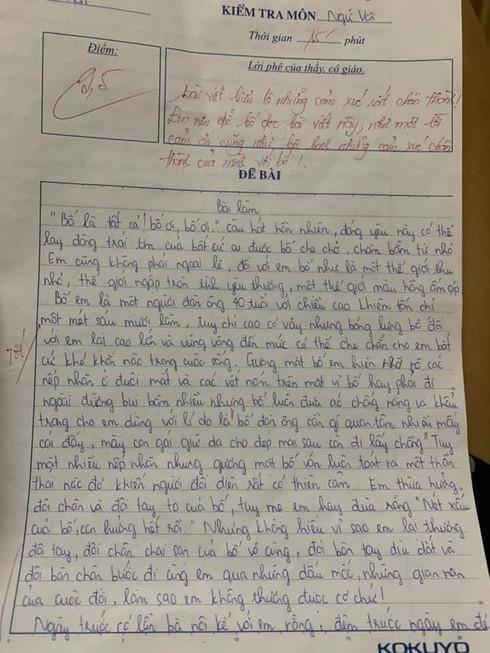 KIỂM TRA MÔN Ngữ Văn
Thời gian 15 phút
Điểm:
Lời phê của thầy, cô giáo.
bài viết biểu lộ những cảm xúc rất chân thành!
Em nên để bố đọc bài viết này, như một lời
cảm ơn cũng như bộc bạch những cảm xúc chân
thành của mình với bố!
ĐỀ BÀI
Bài làm
"Bố là tất cả! bố ơi, bố ơi." Câu hát hồn nhiên, đáng yêu này có thể
lay động trái tim của bất cứ ai được bố che chở, chăm bẵm từ nhỏ
Em cũng không phải ngoại lệ, đối với em bố như là một thế giới thu
nhỏ, thế giới ngập tràn tình yêu thương, một thế giới màu hồng ấm áp
Bố em là một người đàn ông 40 tuổi với chiều cao khiêm tốn chỉ
một mét sáu mươi lăm, tuy chỉ cao có vậy nhưng bóng lưng bố đối
với em lại cao lớn và vững vàng đến mức có thể che chắn cho em bất
cứ khó khăn nào trong cuộc sống. Gương mặt bố em hiện rõ các
nếp nhăn ở đuôi mắt và các vết nám trên mặt vì bố hay phải đi
ngoài đường bụi bặm nhiều nhưng bố luôn đưa áo chống nắng và khẩu
trang cho em dùng với lí do là "bố đàn ông cần gì quan tâm nhiều mấy
cái đấy, mày con gái giữ da cho đẹp mai sau còn đi lấy chồng" Tuy
mặt nhiều nếp nhăn nhưng gương mặt bố vẫn luôn toát ra một thần
thái nào đó khiến người đối diện rất có thiện cảm. Em thừa hưởng
đôi chân và đôi tay to của bố, tuy mẹ em hay đùa rằng "Nét xấu
của bố, con hưởng hết rồi." Nhưng không hiểu vì sao em lại thương
đôi tay, đôi chân chai sạn của bố vô cùng, đôi bàn tay dìu dắt và
đôi bàn chân bước đi cùng em qua những dấu mốc, những gian nan
của cuộc đời, làm sao em không thương được cơ chứ!
Ngày trước có lần bà nội kể với em rằng, đêm trước ngày em đẻ
KOKUYO